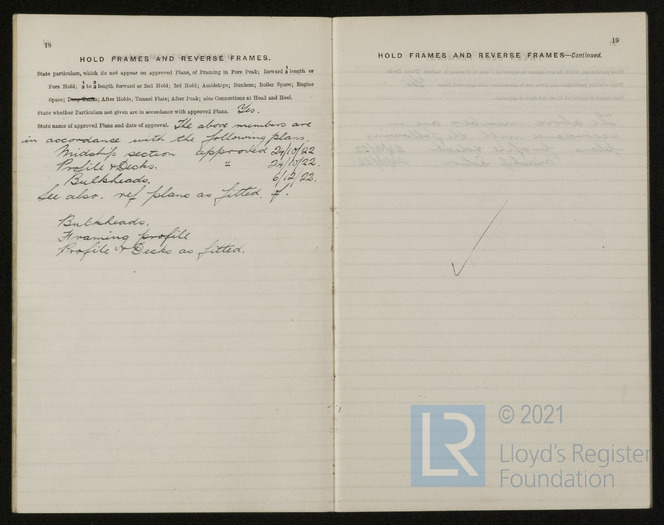 18
HOLD FRAMES AND REVERSE FRAMES.
State particulars, which do not appear on approved Plans, of Framing in Fore Peak; forward ¼ length or
Fore Hold; ¼ to ⅗ length forward or 2nd Hold; 3rd Hold; Amidships; Bunker; Boiler Space; Engine
Space; Deep Tanks; After Holds; Tunnel Flats; After Peak; also Connections at Head and Heel.
State whether Particulars not given are in accordance with approved Plans. Yes.
State name of approved Plans and date of approval. The above members are
in accordance with the following plans
Midship section approved 24/10/22
Profile & Decks. " 24/10/22.
Bulkheads. 6/12/22.
See also. ref plans as fitted. of:
Bulkheads.
Framing profile
Profile & Decks as fitted.
19
HOLD FRAMES AND REVERSE FRAMES—Continued.
LR
© 2021
Lloyd's Register
Foundation